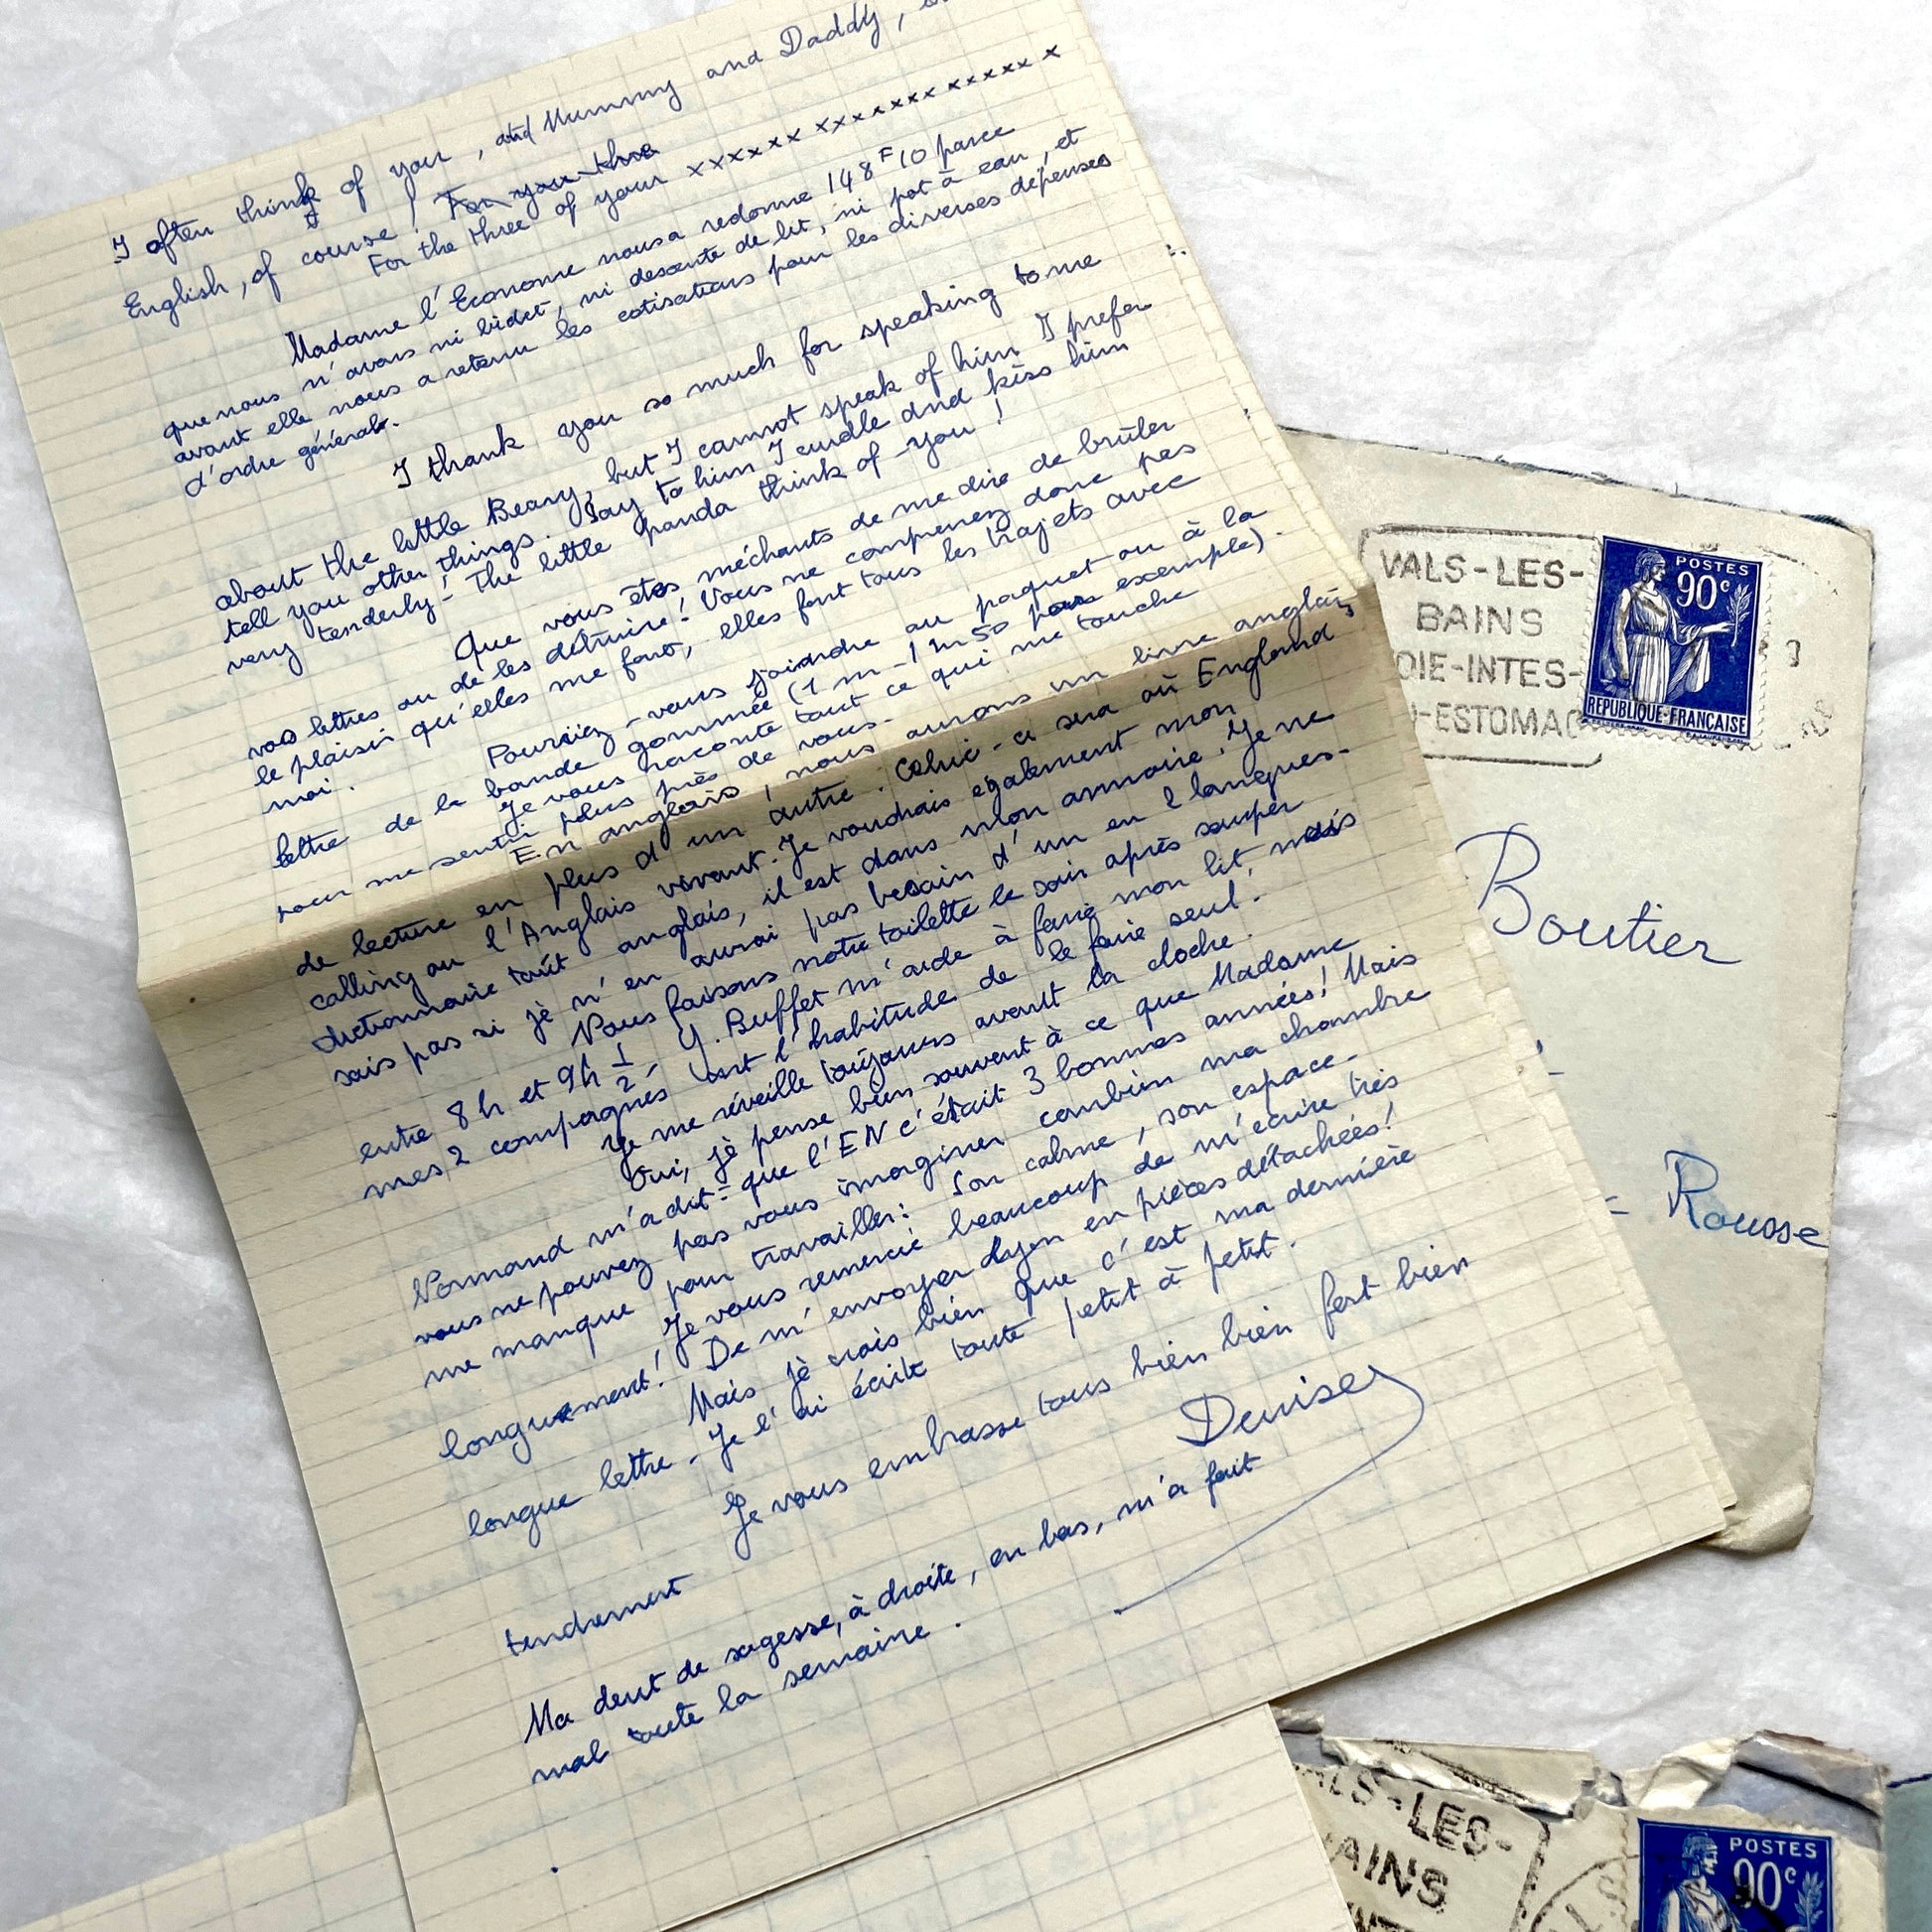 I often think of you, and Mummy and Daddy,
English, of course! For you three
For the three of your xxxxxx xxxxxxxx xxxxxx x
Madame l'Econome nous a redonné 148F10 parce
que nous n'avons ni bidet, ni descente de lit, ni pot à eau, et
avant elle nous a retenu les cotisations pour les diverses dépenses
d'ordre général.
I thank you so much for speaking to me
about the little Beary, but I cannot speak of him I prefer
tell you other things. Say to him I cudle and kiss him
very tenderly! The little panda think of you!
Que vous êtes méchants de me dire de brûler
vos lettres ou de les détruire! Vous ne comprenez donc pas
le plaisir qu'elles me font, elles font tous les trajets avec
moi.
Pourriez-vous joindre au paquet ou à la
lettre de la bande gommée (1 m - 1 m 50 par exemple).
Je vous raconte tout ce qui me touche
pour me sentir plus près de vous.
En anglais, nous aurons un livre anglais
de lecture en plus d'un autre. Celui-ci sera où England
calling ou l'Anglais vivant. Je voudrais également mon
dictionnaire tout anglais, il est dans mon armoire. Je ne
sais pas si je n'en aurai pas besoin d'un en 2 langues.
Nous faisons notre toilette le soir après souper
entre 8h et 9h 1/2. Y. Buffet m'aide à faire mon lit, mais
mes 2 compagnes ont l'habitude de le faire seul.
Je me réveille toujours avant la cloche.
Oui, je pense bien souvent à ce que Madame
Normand m'a dit: que l'EN c'était 3 bonnes années! Mais
vous ne pouvez pas vous imaginer combien ma chambre
me manque pour travailler: Son calme, son espace.
Je vous remercie beaucoup de m'écrire très
longuement! De m'envoyer Lyon en pièces détachées!
Mais je crois bien que c'est ma dernière
longue lettre. Je l'ai écrite toute petit à petit.
Je vous embrasse tous bien bien fort bien
tendrement
Denise
Ma dent de sagesse, à droite, en bas, m'a fait
mal toute la semaine.
VALS-LES-
BAINS
OIE-INTES-
-ESTOMAC
POSTES
90c
REPUBLIQUE-FRANÇAISE
Boutier
Rousse
ALS-LES-
AINS
POSTES
90c